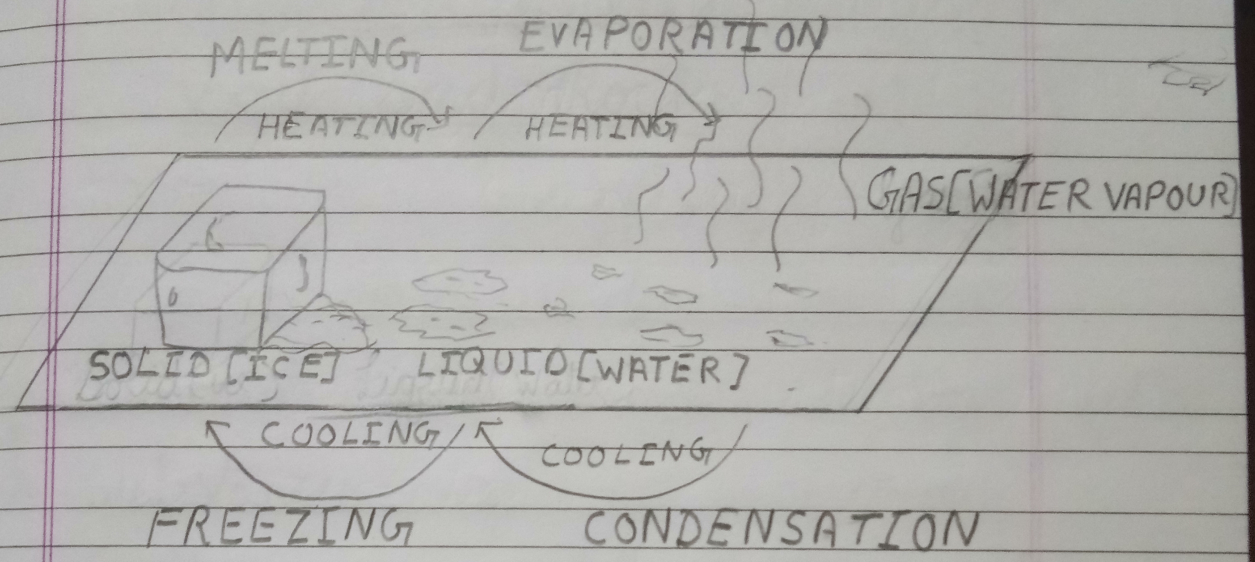 MELTING
EVAPORATION
HEATING
HEATING
GAS[WATER VAPOUR]
SOLID[ICE]
LIQUID[WATER]
COOLING
COOLING
FREEZING
CONDENSATION